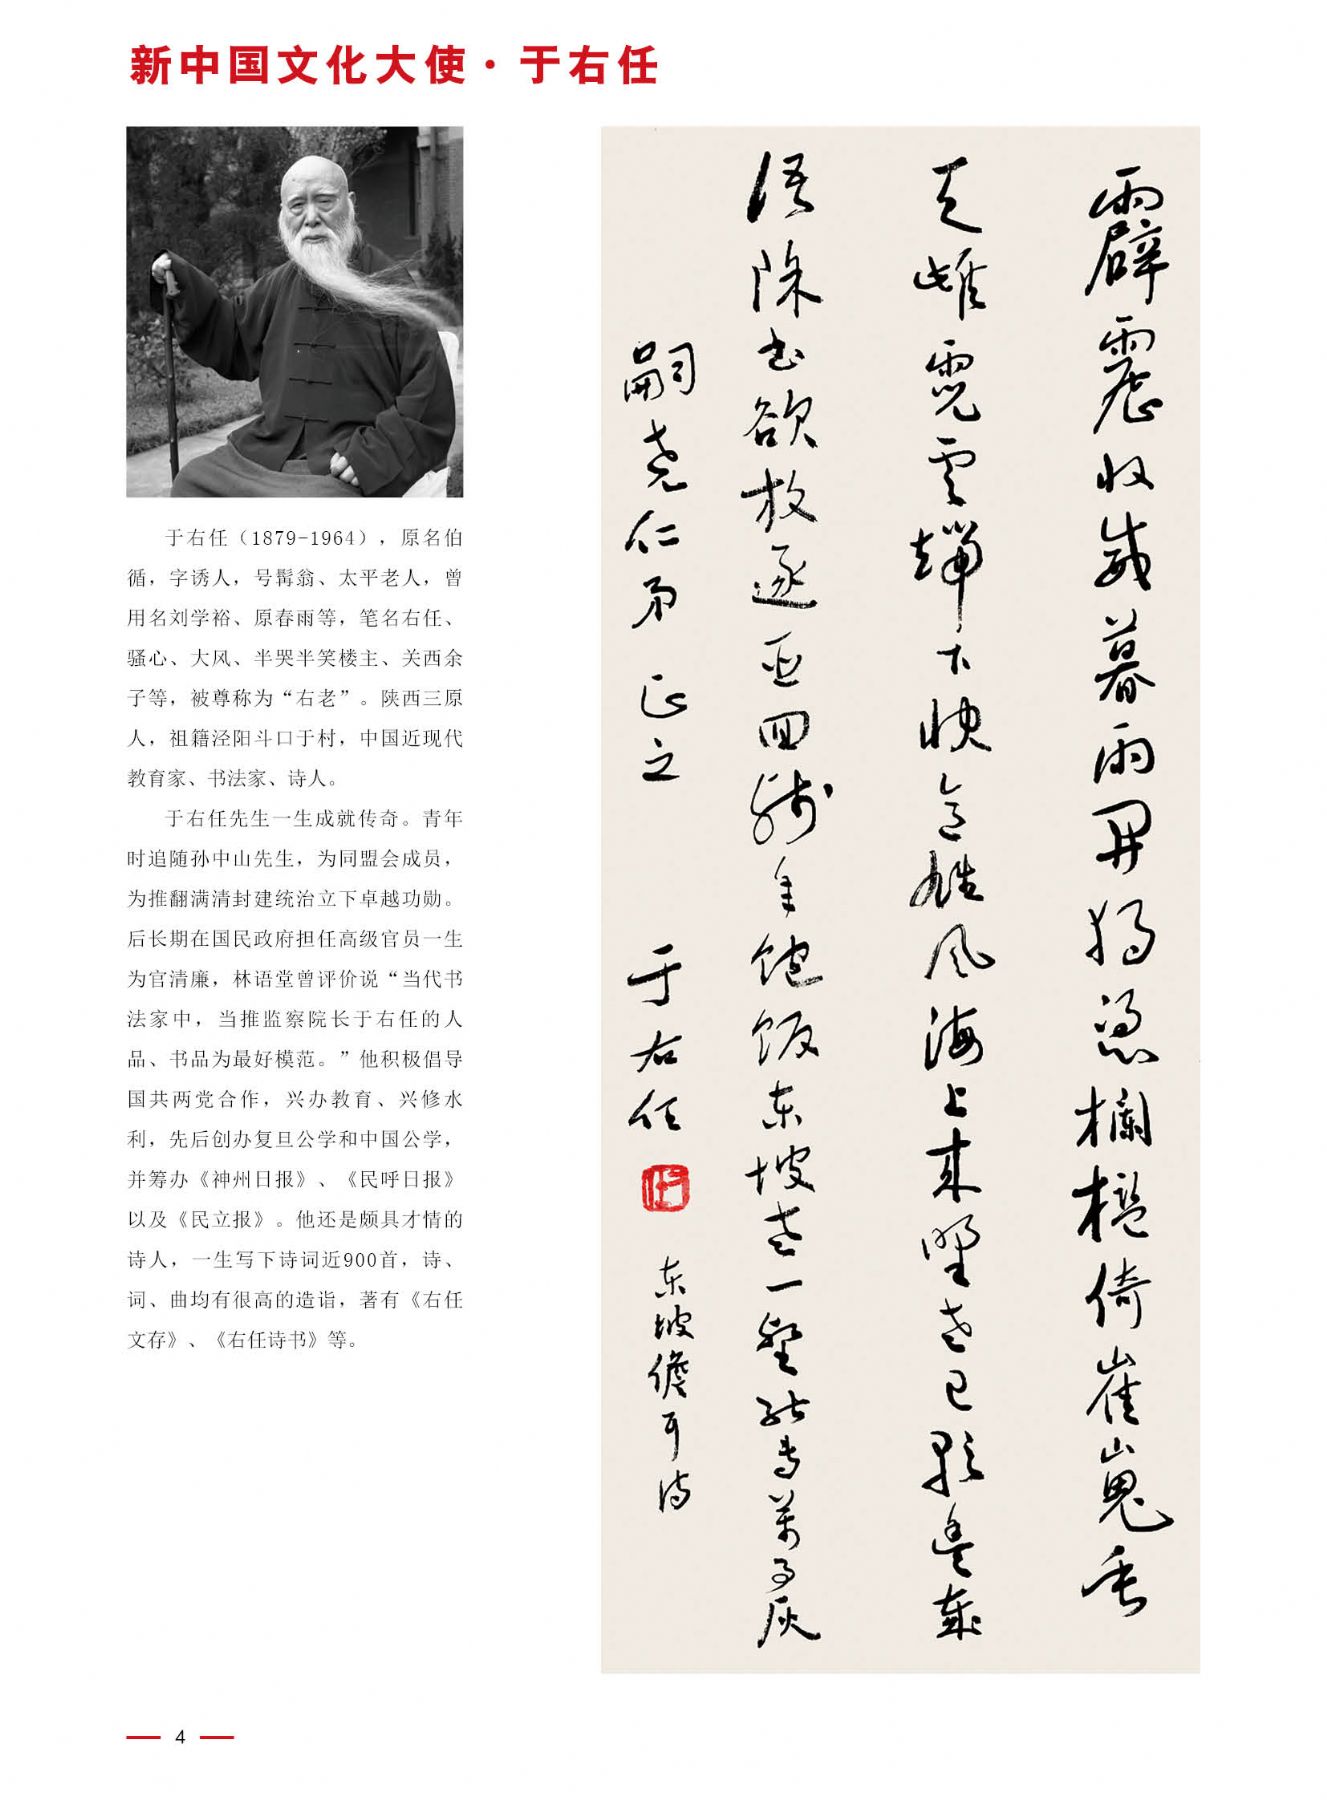 新中国文化大使·于右任
于右任（1879-1964），原名伯
循，字诱人，号髯翁、太平老人，曾
用名刘学裕、原春雨等，笔名右任、
骚心、大风、半哭半笑楼主、关西余
子等，被尊称为“右老”。陕西三原
人，祖籍泾阳斗口于村，中国近现代
教育家、书法家、诗人。
于右任先生一生成就传奇。青年
时追随孙中山先生，为同盟会成员，
为推翻满清封建统治立下卓越功勋。
后长期在国民政府担任高级官员一生
为官清廉，林语堂曾评价说“当代书
法家中，当推监察院长于右任的人
品、书品为最好模范。”他积极倡导
国共两党合作，兴办教育、兴修水
利，先后创办复旦公学和中国公学，
并筹办《神州日报》、《民呼日报》
以及《民立报》。他还是颇具才情的
诗人，一生写下诗词近900首，诗、
词、曲均有很高的造诣，著有《右任
文存》、《右任诗书》等。
霹靂收威暮雨開獨憑欄檻倚崔嵬垂
天雌霓雲端下快意雄風海上來野老已歌豐歲
語除書欲放逐臣回殘年飽飯東坡老一壑能專萬事灰
嗣堯仁弟 正之 于右任 東坡儋耳詩
4